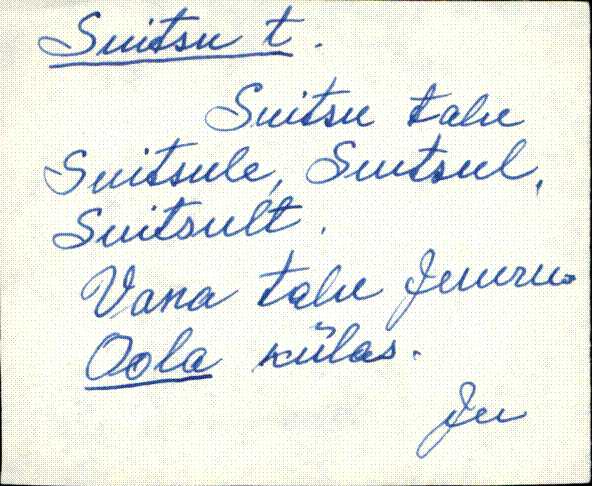 Suitsu t.
Suitsu talu
Suitsule, Suitsul,
Suitsult.
Vana talu
Oola külas.